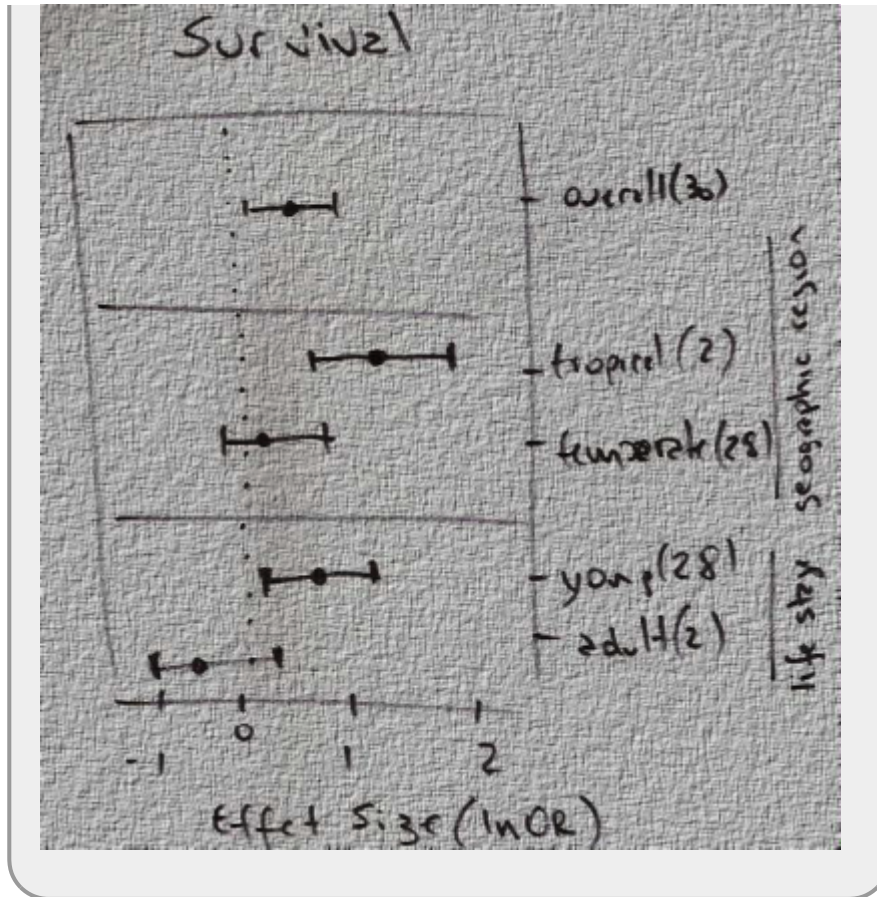 Survival
overall(30)
tropical (2)
temperate (28)
geographic region
young(28)
adult(2)
life stag
-1
0
1
2
Effect Size (lnOR)